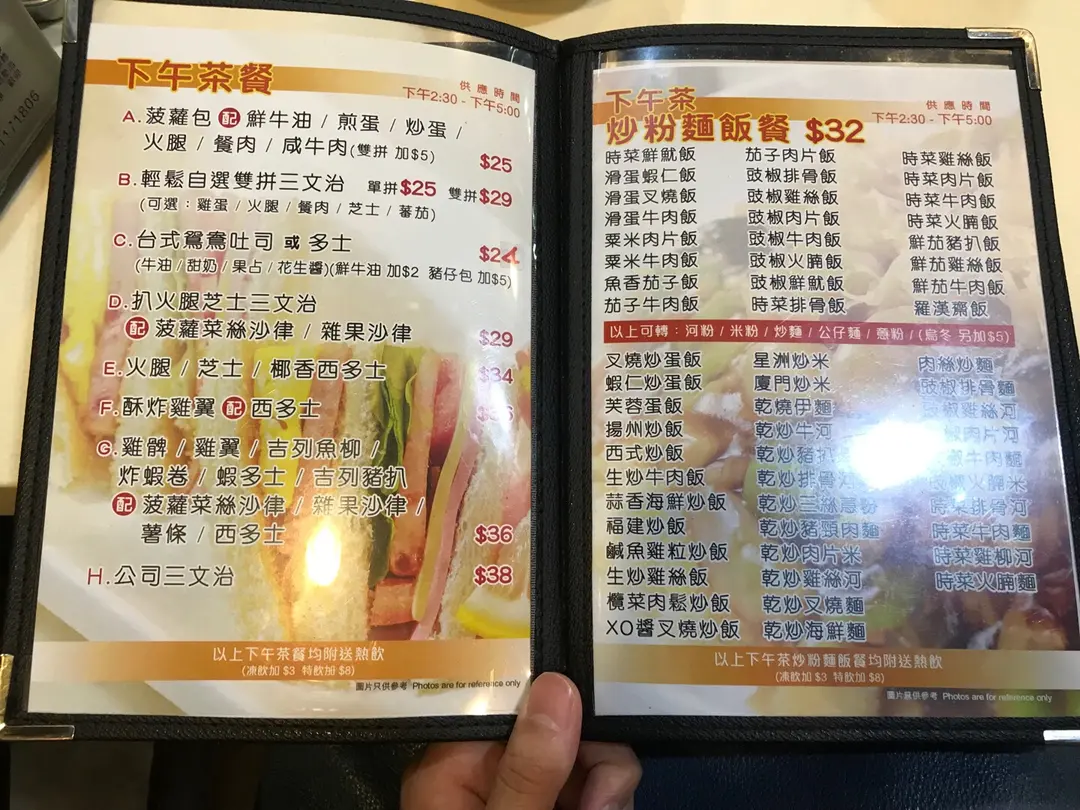 11/1806
下午茶餐
供應時間
下午2:30 - 下午5:00
A.菠蘿包 配 鮮牛油 / 煎蛋 / 炒蛋 /
火腿 / 餐肉 / 咸牛肉(雙拼 加$5) $25
B.輕鬆自選雙拼三文治 單拼$25 雙拼$29
(可選：雞蛋 / 火腿 / 餐肉 / 芝士 / 蕃茄)
C.台式鴛鴦吐司 或 多士 $24
(牛油 / 甜奶 / 果占 / 花生醬)(鮮牛油 加$2 豬仔包 加$5)
D.扒火腿芝士三文治
配 菠蘿菜絲沙律 / 雜果沙律 $29
E.火腿 / 芝士 / 椰香西多士 $34
F.酥炸雞翼 配 西多士
G.雞髀 / 雞翼 / 吉列魚柳 /
炸蝦卷 / 蝦多士 / 吉列豬扒
配 菠蘿菜絲沙律 / 雜果沙律 /
薯條 / 西多士 $36
H.公司三文治 $38
以上下午茶餐均附送熱飲
(凍飲加 $3 特飲加 $8)
圖片只供參考 Photos are for reference only
下午茶
炒粉麵飯餐 $32
供應時間
下午2:30 - 下午5:00
時菜鮮魷飯 茄子肉片飯 時菜雞絲飯
滑蛋蝦仁飯 豉椒排骨飯 時菜肉片飯
滑蛋叉燒飯 豉椒雞絲飯 時菜牛肉飯
滑蛋牛肉飯 豉椒肉片飯 時菜火腩飯
粟米肉片飯 豉椒牛肉飯 鮮茄豬扒飯
粟米牛肉飯 豉椒火腩飯 鮮茄雞絲飯
魚香茄子飯 豉椒鮮魷飯 鮮茄牛肉飯
茄子牛肉飯 時菜排骨飯 羅漢齋飯
以上可轉：河粉 / 米粉 / 炒麵 / 公仔麵 / 意粉 / (烏冬 另加$5)
叉燒炒蛋飯 星洲炒米 肉絲炒麵
蝦仁炒蛋飯 廈門炒米 豉椒排骨麵
芙蓉蛋飯 乾燒伊麵 豉椒雞絲河
揚州炒飯 乾炒牛河 椒肉片河
西式炒飯 乾炒豬扒 椒牛肉麵
生炒牛肉飯 乾炒排骨 火腩米
蒜香海鮮炒飯 乾炒三絲意粉 時菜排骨河
福建炒飯 乾炒豬頸肉麵 時菜牛肉麵
鹹魚雞粒炒飯 乾炒肉片米 時菜雞柳河
生炒雞絲飯 乾炒雞絲河 時菜火腩麵
欖菜肉鬆炒飯 乾炒叉燒麵
XO醬叉燒炒飯 乾炒海鮮麵
以上下午茶炒粉麵飯餐均附送熱飲
(凍飲加 $3 特飲加 $8)
圖片只供參考 Photos are for reference only